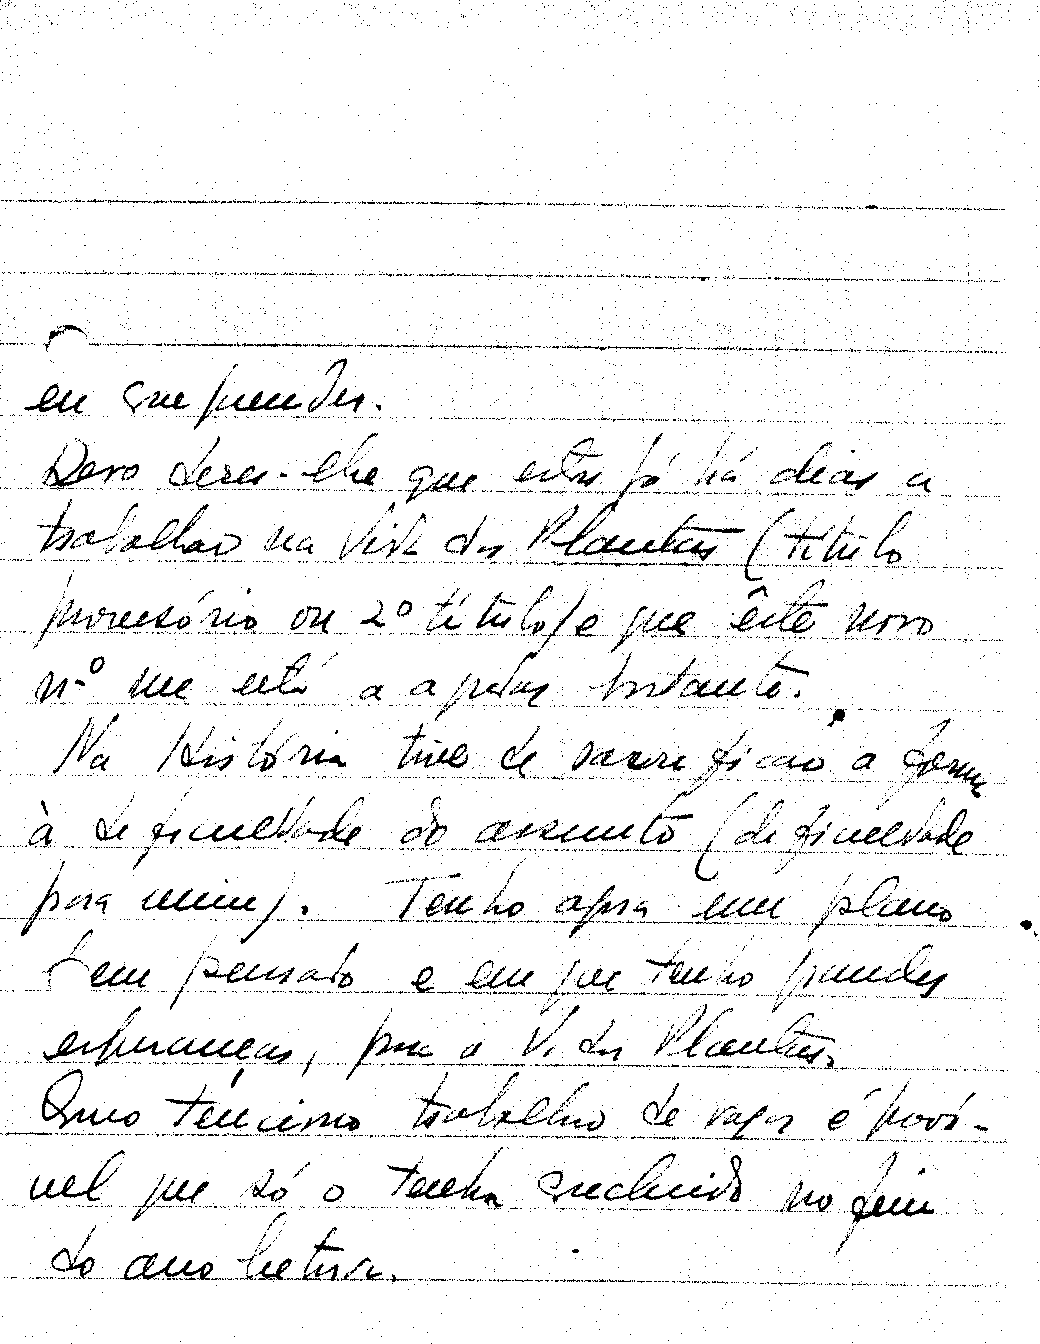 eu compreender.
Devo dizer-lhe que estou já há dias a
trabalhar na Vida das Plantas (título
provisório ou 2º título) e que êste novo
n.º me está a agradar bastante.
Na História tive de sacrificar a forma
à dificuldade do assunto (dificuldade
para mim). Tenho agora um plano
bem pensado e em que tenho grandes
esperanças, para a V. das Plantas.
Como tenciono trabalhar de vagar é possí-
vel que só o tenha concluido no fim
do ano